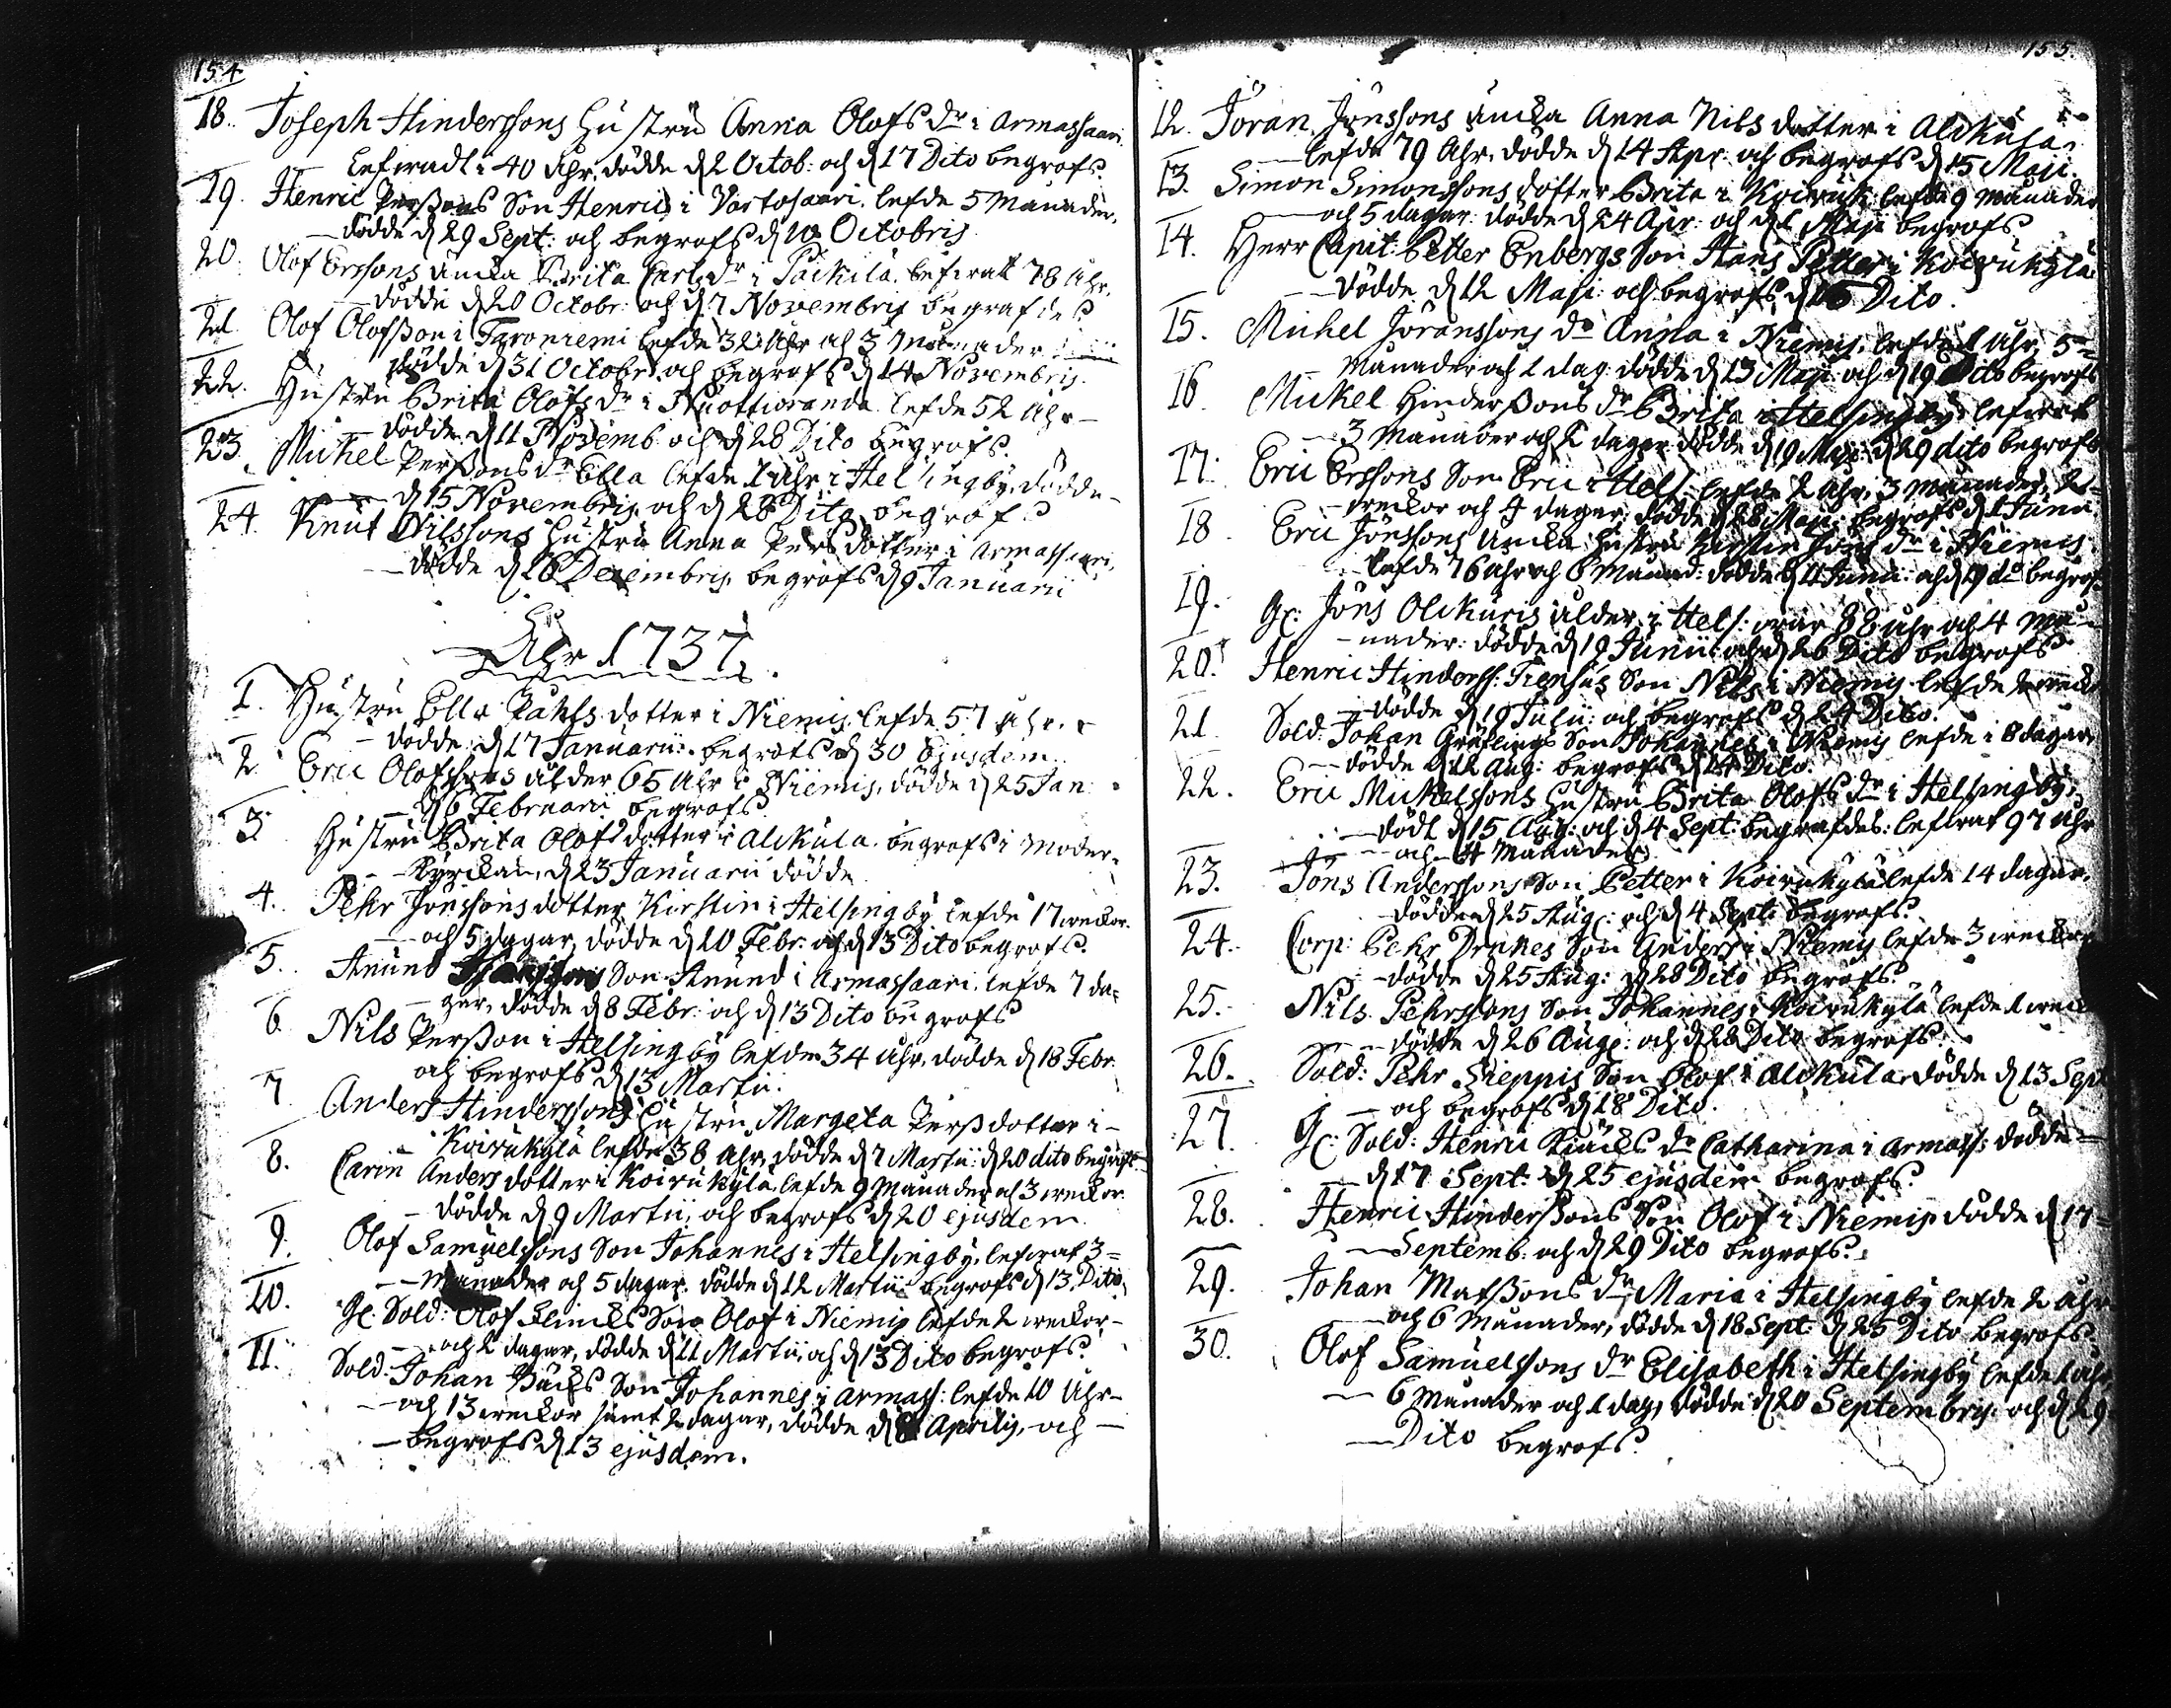 154
18. Joseph Hinderssons Hustru Anna Olofs dr i Armassaari
lefwadt i 40 Åhr, dödde d 2 Octob: och d 17 Dito begrofs.
19. Henric Perssons Son Henric i Vartosaari. lefde 5 Månader,
dödde d 29 Sept: och begrofs d 10 Octobris
20. Olof Erssons Enckia Brita Carls dr i Päckilä. lefwat 78 Åhr.
dödde d 20 Octobr: och d 7 Novembris begrafdes
21. Olof Olofsson i Taroniemi lefde 32 Åhr och 3 Månader
dödde d 31 Octobr: och begrofs d 14 Novembris.
22. Hustru Brita Olofs dr i Nuottioranda lefde 52 Åhr
dödde d 11 Novemb: och d 28 Dito begrofs.
23. Michel Perssons dr Ebla lefde 1 Åhr i Helsingby, dödde
d 15 Novembris och d 28 Dito begrofs
24. Knut Nilssons Hustru Anna Pers dotter i Armassaari,
dödde d 26 Decembris, begrofs d 9 Januarii
Åhr 1737.
1. Hustru Ella Påhls dotter i Niemis, lefde 57 Åhr.
dödde d 17 Januarii. begrofs d 30 Ejusdem.
2. Eric Olofssons ålder 65 Åhr i Niemis, dödde d 25 Jan:
d 6 Februarii begrofs.
3. Hustru Brita Olofs dotter i Alckula. begrofs i Moder
Kyrckan, d 23 Januarii dödde
4. Pehr Jönssons dotter Kirstin i Helsingby lefde 17 weckor
och 5 dagar, dödde d 10 Febr: och d 13 Dito begrofs.
5. Anund Son Anund i Armassaari. lefde 7 da-
gar, dödde d 8 Febr: och d 13 Dito begrofs
6. Nils Persson i Helsingby lefde 34 Åhr, dödde d 18 Febr:
och begrofs d 13 Martii.
7. Anders Hinderssons Hustru Margeta Perss dotter i
Koirukylä lefde 38 Åhr, dödde d 7 Martii: d 20 dito begrofs
8. Carin Anders dotter i Koirukylä, lefde 9 Månader och 3 weckor
dödde d 9 Martii, och begrofs d 20 ejusdem.
9. Olof Samuelssons Son Johannes i Helsingby, lefwat 3
Månader och 5 dagar. dödde d 12 Martii begrofs d 13. Dito.
10. Gl. Sold: Olof Flincks Son Olof i Niemis lefde 2 weckor
och 2 dagar, dödde d 11 Martii, och d 13 Dito begrofs.
11. Sold: Johan Bäcks Son Johannes i Armass: lefde 10 Åhr
och 13 weckor samt 2 dagar, dödde d 8 Aprilis, och
begrofs d 13 ejusdem.
155.
12. Jöran Jönssons Enckia Anna Nils dotter i Alckula.
lefde 79 Åhr. dödde d 14 Apr: och begrofs d 15 Maji.
13. Simon Simonssons dotter Brita i Koiruk: lefde 9 Månader
och 5 dagar. dödde d 24 Apr: och d 1 Maji begrofs
14. Herr Capit: Petter Enbergs Son Hans Petter i Koirukylä
dödde d 12 Maji: och begrofs d 16 Dito.
15. Michel Jöranssons dr Anna i Niemis, lefde 1 Åhr, 5
Månader och 1 dag: dödde d 13 Maji och d 19 Dito begrofs
16. Mickel Hinderssons dr Brita i Helsingby: lefwat
3 Månader och 2 dagar dödde d 19 Maji: d 29 dito begrofs
17. Eric Erssons Son Eric i Hels: lefde 2 Åhr, 3 Månader, 2
weckor och 4 dagar, dödde d 28 Maji: begrofs d 1 Junii
18. Eric Jönssons Enckia Hustru Kirstin Jöns dr i Niemis.
lefde 76 Åhr och 6 Månad: dödde d 11 Junii: och d 19 do begrofs
19. Gl: Jöns Olckuris ålder i Hels: war 88 Åhr och 4 Må-
nader: dödde d 19 Junii och d 26 Dito begrofs
20. Henric Hinderss: Son Nils i Niemis lefde 2 weck
dödde d 19 Julii: och begrofs d 24 Dito.
21. Sold: Johan Gräflings Son Johannes i Niemis lefde i 8 dagar
dödde d 12 Aug: begrofs d 14 Dito.
22. Eric Mickelssons Hustru Brita Olofs dr i Helsingby,
dödt d 15 Aug: och d 4 Sept: begrafdes: lefwat 97 Åhr
och 4 Månader
23. Jöns Anderssons Son Petter i Koirukylä lefde 14 dagar.
dödde d 25 Aug: och d 4 Sept: begrofs.
24. Corp: Pehr Drakes Son Anders i Niemis lefde 3 weckor
dödde d 25 Aug: d 28 Dito begrofs.
25. Nils Pehrssons Son Johannes i Koirukylä lefde 1 weck
dödde d 26 Aug: och d 28 Dito begrofs.
26. Sold: Pehr Sieppis Son Olof i Alckula dödde d 13 Sept
och begrofs d 18 Dito.
27. Gl: Sold: Henric dr Catharina i Armass: dödde
d 17 Sept: d 25 ejusdem begrofs.
28. Henric Hinderssons Son Olof i Niemis dödde d 17
Septemb: och d 29 Dito begrofs.
29. Johan Matssons dr Maria i Helsingby lefde 2 Åhr
och 6 Månader, dödde d 18 Sept: d 25 Dito begrofs.
30. Olof Samuelssons dr Elisabeth i Helsingby lefde 1 Åhr
6 Månader och 1 dag, dödde d 20 Septembris och d 29
Dito begrofs.